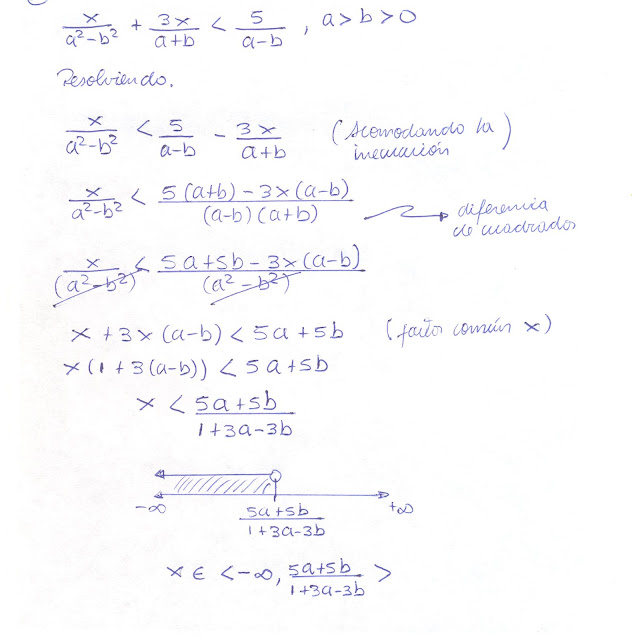 x/(a²-b²) + 3x/(a+b) < 5/(a-b) , a > b > 0
Resolviendo.
x/(a²-b²) < 5/(a-b) - 3x/(a+b) (Acomodando la inecuación)
x/(a²-b²) < (5(a+b) - 3x(a-b))/((a-b)(a+b)) → diferencia de cuadrados
x/(a²-b²) < (5a+5b-3x(a-b))/(a²-b²)
x + 3x(a-b) < 5a+5b (factor común x)
x(1+3(a-b)) < 5a+5b
x < (5a+5b)/(1+3a-3b)
-∞ (5a+5b)/(1+3a-3b) +∞
x ∈ <-∞, (5a+5b)/(1+3a-3b) >